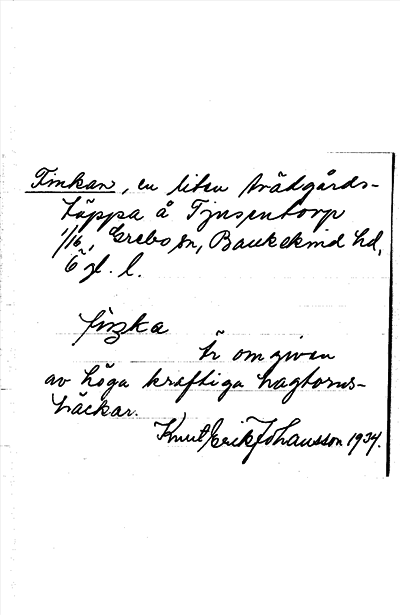 Finkan, en liten trädgårds-
täppa å Tjusentorp
1/16, Grebo sn, Bankekind hd,
Ög l.
finka
Är omgiven
av höga kraftiga hagtorns-
häckar.
Knut Erik Johansson 1934.